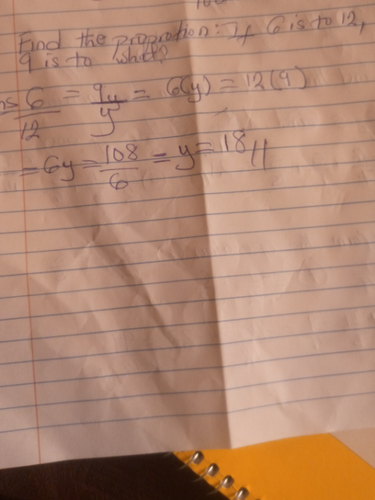 Find the proprotion: If 6 is to 12,
9 is to which?
ns 6/12 = 9/y = 6(y) = 12(9)
= 6y = 108/6 = y = 18//